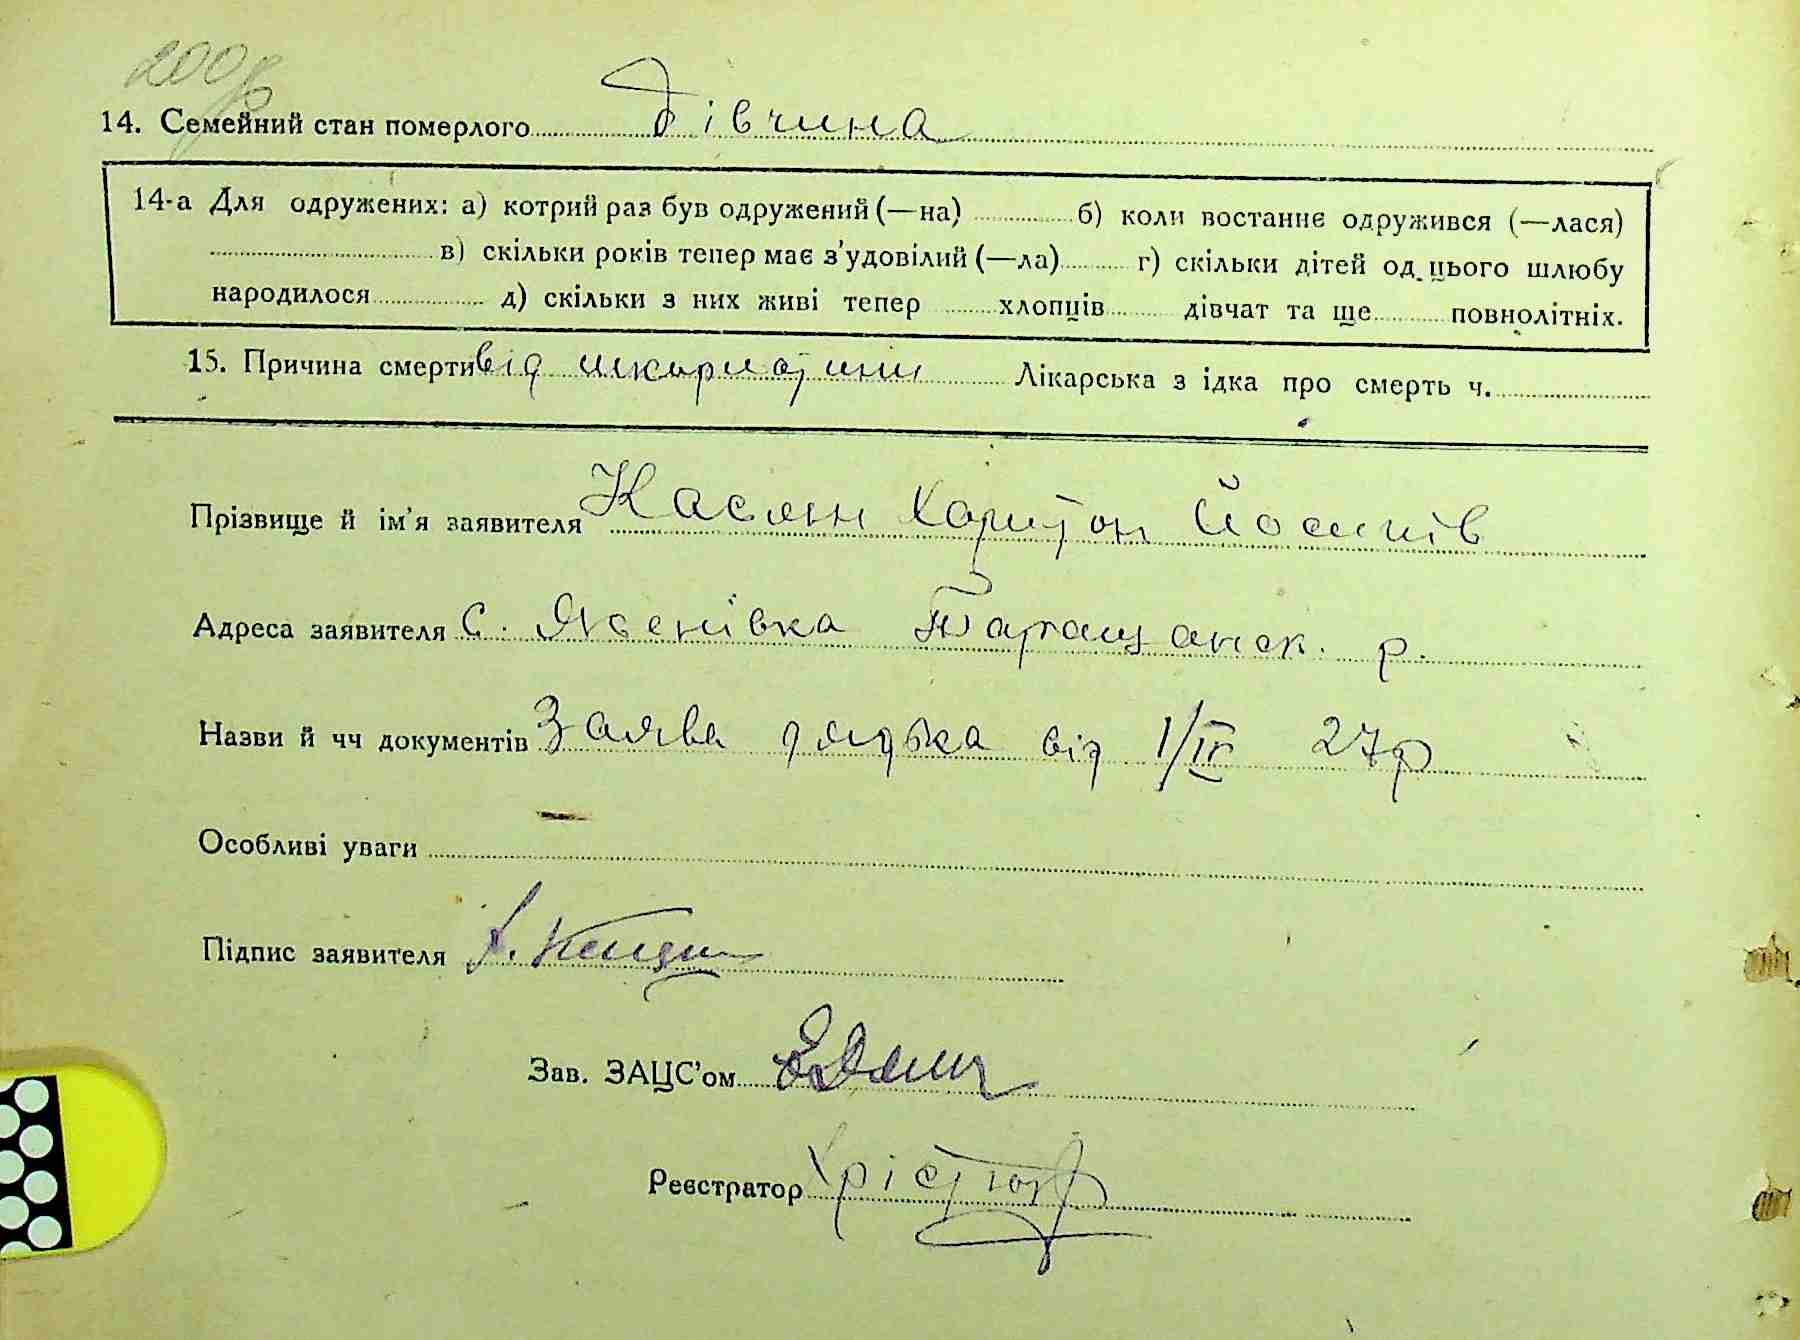 14. Семейний стан померлого Дівчина
14-а Для одружених: а) котрий раз був одружений (—на) б) коли востаннє одружився (—лася)
в) скільки років тепер має з'удовілий (—ла) г) скільки дітей од цього шлюбу
народилося д) скільки з них живі тепер хлопців дівчат та ще повнолітніх.
15. Причина смерти від шкарлатини Лікарська з ідка про смерть ч.
Прізвище й ім'я заявителя Касян Харитон Йосипів
Адреса заявителя с. Яненівка Таращанск. р.
Назви й чч документів Заява дядька від 1/IV 27р
Особливі уваги
Підпис заявителя
Зав. ЗАЦС'ом
Реєстратор